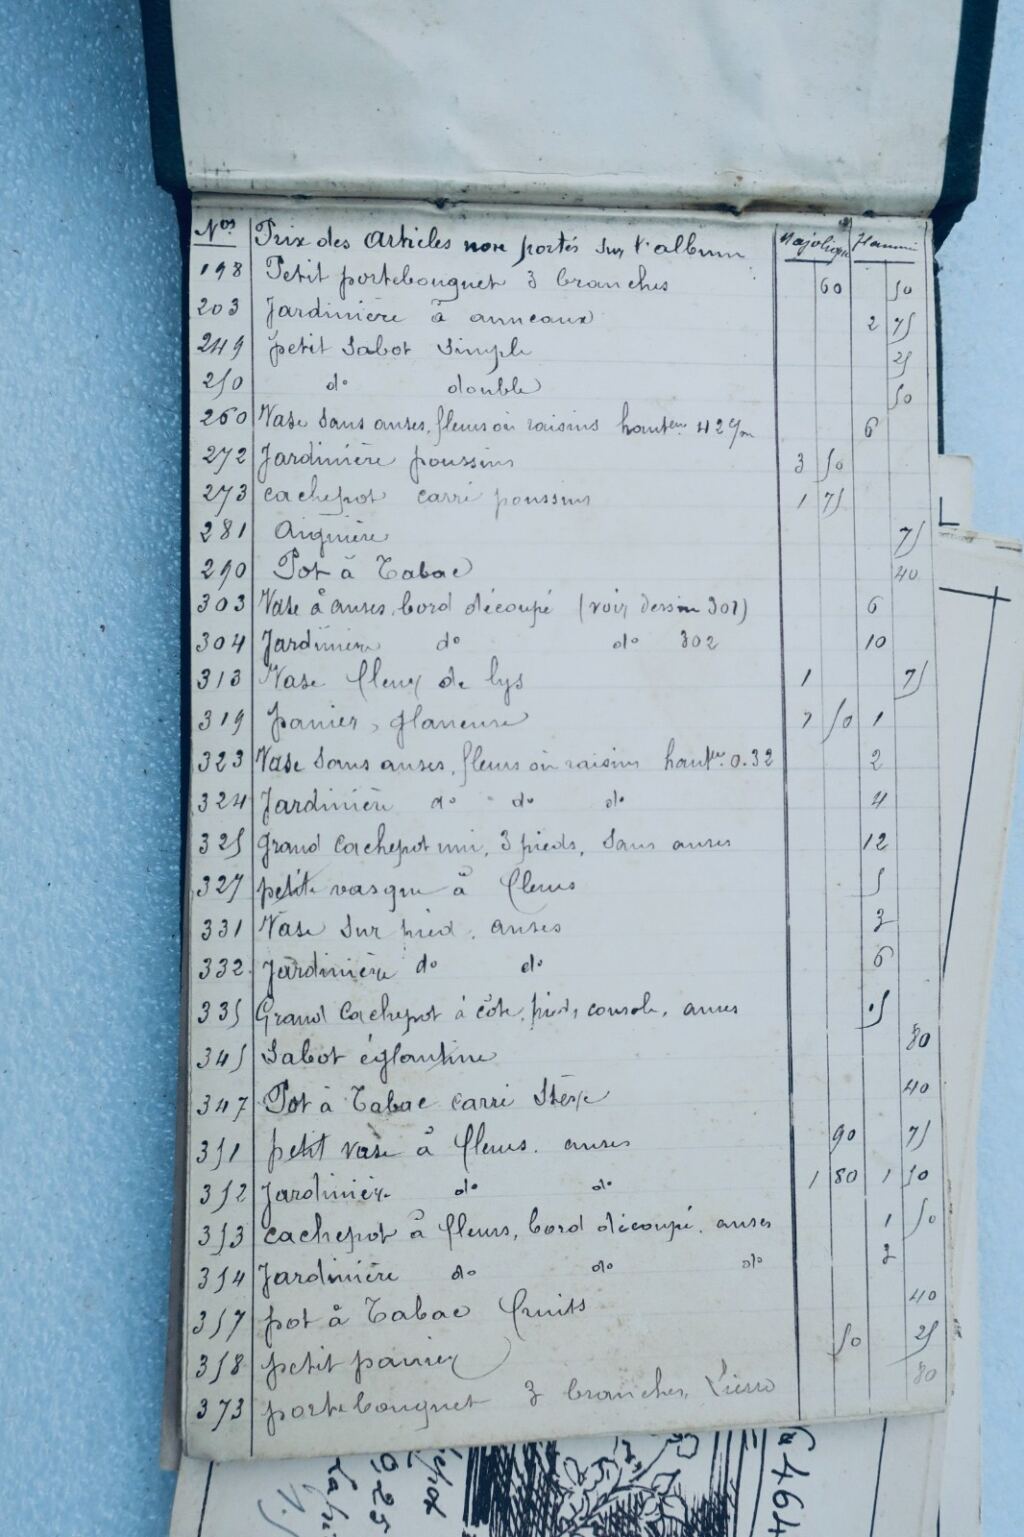 Nos Prix des articles non portés sur l'album Majolique
198 Petit portebouquet 3 branches 60 50
203 Jardinière à anneaux 2 75
249 petit Sabot Simple 25
250 do double 50
260 Vase sans anses, fleurs ou raisins hauteur 42 c/m 6
272 Jardinière poussins 3 50
273 cachepot carré poussins 1 75
281 Aiguière 75
290 Pot à Tabac 40
303 Vase à anses, bord découpé (voir dessin 301) 6
304 Jardinière do do 302 10
313 Vase fleur de lys 1 75
319 panier, glaneuse 50 1
323 Vase sans anses, fleurs ou raisins hautr. 0.32 2
324 Jardinière do do do 4
325 Grand cachepot uni, 3 pieds, sans anses 12
327 petite vasque à fleurs 5
331 Vase sur pied, anses 3
332 Jardinière do do 6
335 Grand Cachepot à côte, pieds, console, anses 15
345 Sabot églantine 80
347 Pot à Tabac carré 40
351 petit vase à fleurs. anses 90 75
352 Jardinière do do 1 80 1 50
353 cachepot à fleurs, bord découpé, anses 1 50
354 Jardinière do do do 3
357 pot à Tabac fruits 40
358 petit panier 50 25
373 portebouquet 3 branches, Lierre 80
464
925